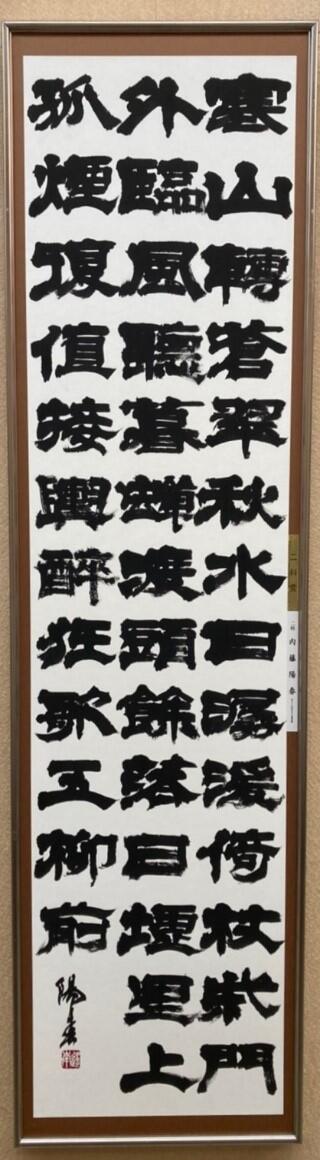 寒山轉蒼翠秋水日潺湲倚杖柴門
外臨風聽暮蟬渡頭餘落日墟里上
孤煙復值接輿醉狂歌五柳前
陽春
内藤陽春